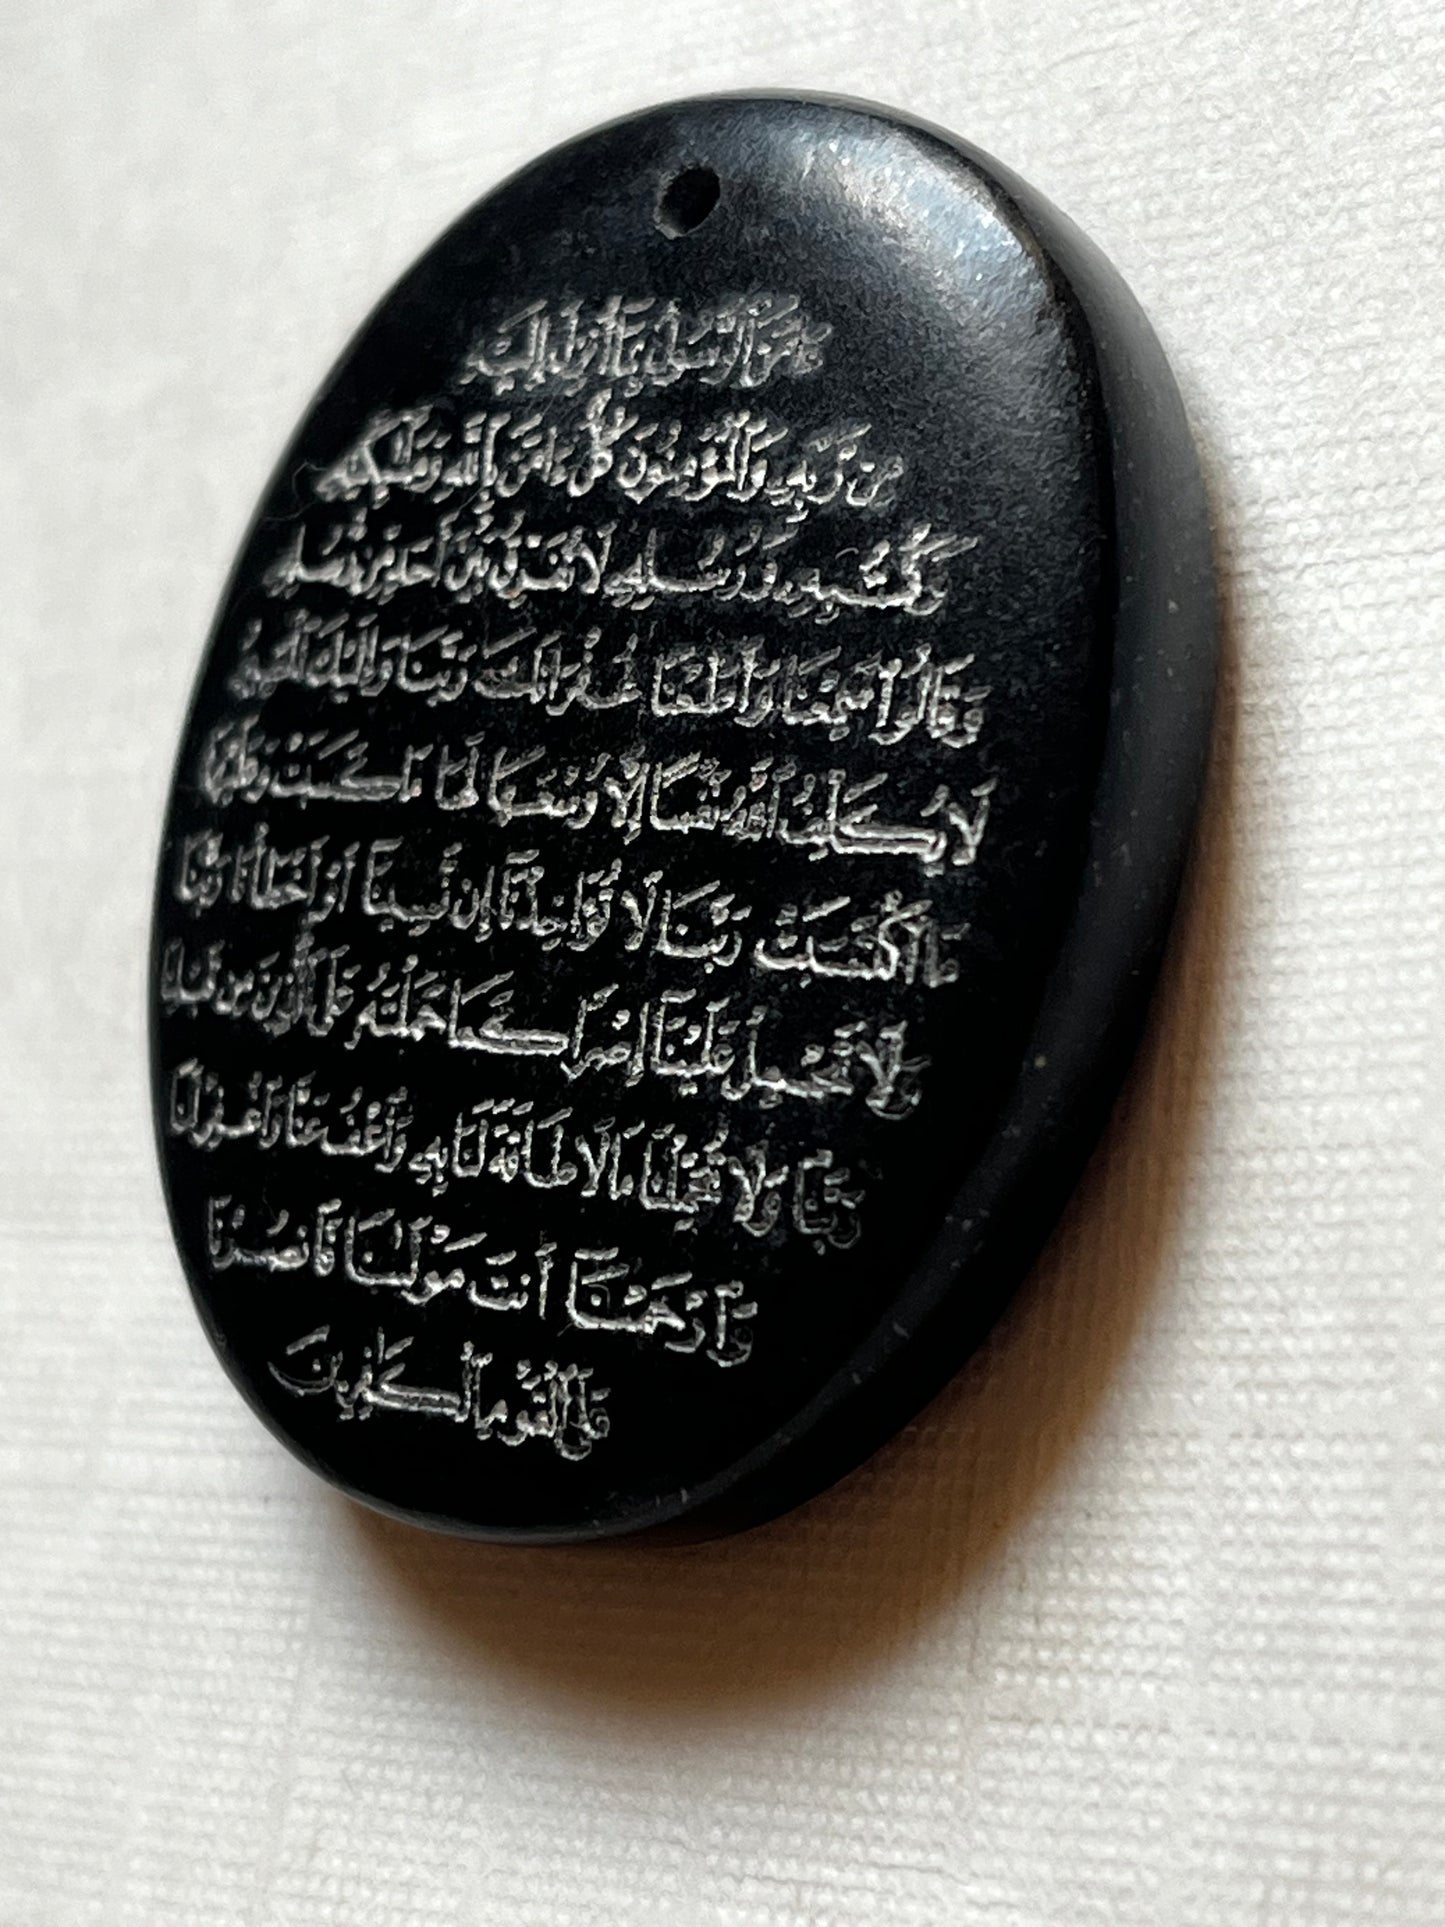 ءَامَنَ ٱلرَّسُولُ بِمَآ أُنزِلَ إِلَيْهِ
مِن رَّبِّهِۦ وَٱلْمُؤْمِنُونَ كُلٌّ ءَامَنَ بِٱللَّهِ وَمَلَٰٓئِكَتِهِۦ
وَكُتُبِهِۦ وَرُسُلِهِۦ لَا نُفَرِّقُ بَيْنَ أَحَدٍ مِّن رُّسُلِهِۦ
وَقَالُوا۟ سَمِعْنَا وَأَطَعْنَا غُفْرَانَكَ رَبَّنَا وَإِلَيْكَ ٱلْمَصِيرُ
لَا يُكَلِّفُ ٱللَّهُ نَفْسًا إِلَّا وُسْعَهَا لَهَا مَا كَسَبَتْ وَعَلَيْهَا
مَا ٱكْتَسَبَتْ رَبَّنَا لَا تُؤَاخِذْنَآ إِن نَّسِينَآ أَوْ أَخْطَأْنَا رَبَّنَا
وَلَا تَحْمِلْ عَلَيْنَآ إِصْرًا كَمَا حَمَلْتَهُۥ عَلَى ٱلَّذِينَ مِن قَبْلِنَا
رَبَّنَا وَلَا تُحَمِّلْنَا مَا لَا طَاقَةَ لَنَا بِهِۦ وَٱعْفُ عَنَّا وَٱغْفِرْ لَنَا
وَٱرْحَمْنَآ أَنتَ مَوْلَىٰنَا فَٱنصُرْنَا
عَلَى ٱلْقَوْمِ ٱلْكَٰفِرِينَ